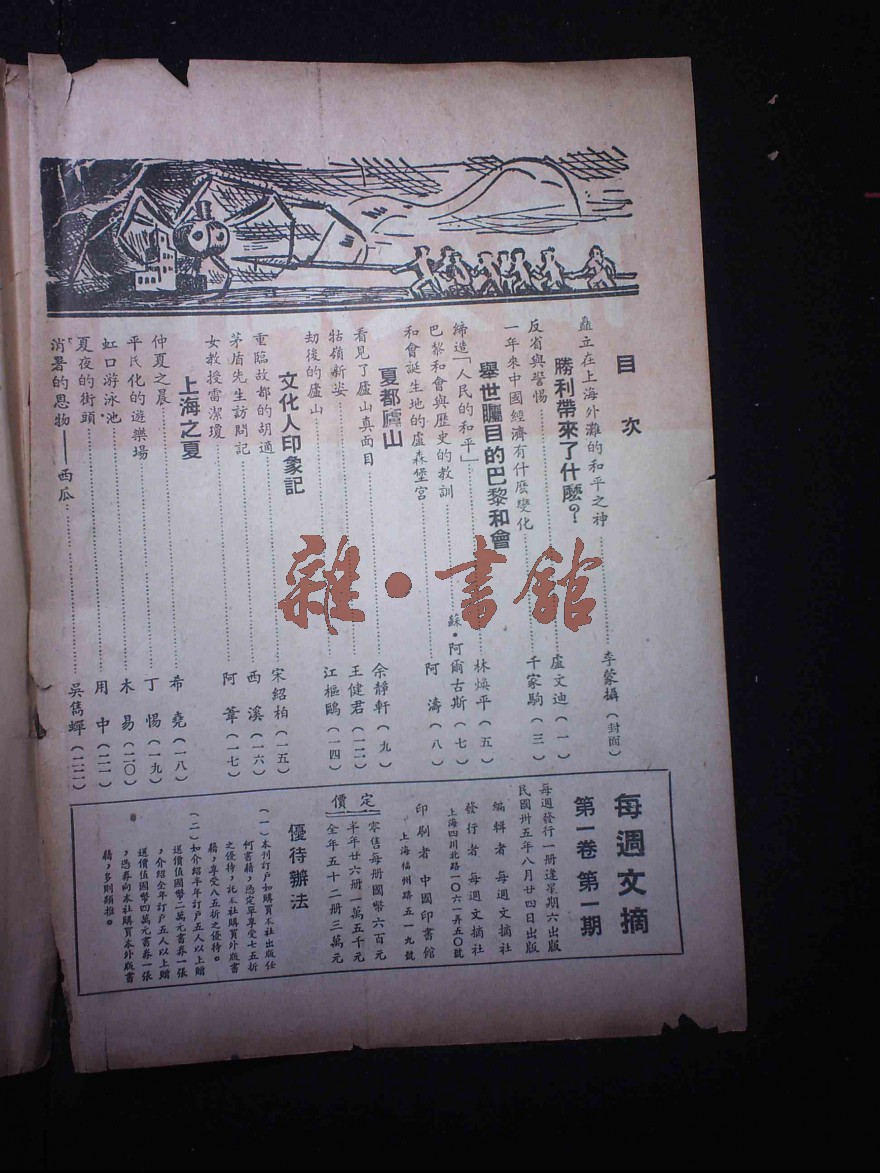 目次
矗立在上海外灘的和平之神 李蒙攝（封面）
勝利帶來了什麽？
反省與警惕 盧文迪（一）
一年來中國經濟有什麽變化 千家駒（三）
舉世矚目的巴黎和會
締造「人民的和平」 林煥平（五）
巴黎和會與歷史的教訓 蘇・阿爾古斯（七）
和會誕生地的盧森堡宮 阿濤（八）
夏都廬山
看見了廬山真面目 余靜軒（九）
牯嶺新姿 王健君（一二）
劫後的廬山 江樞鷗（一四）
文化人印象記
重臨故都的胡適 宋紹柏（一五）
茅盾先生訪問記 西溪（一六）
女教授雷潔瓊 阿葦（一七）
上海之夏
仲夏之晨 希堯（一八）
平民化的遊樂場 丁惕（一九）
虹口游泳池 木易（二〇）
夏夜的街頭 用中（二一）
消暑的恩物——西瓜 吳雋蟬（二二）
每週文摘
第一卷第一期
每週發行一册逢星期六出版
民國卅五年八月廿四日出版
編輯者 每週文摘社
發行者 每週文摘社
上海四川北路一〇六一弄五〇號
印刷者 中國印書館
上海福州路五一九號
定價
零售每册國幣六百元
半年廿六册一萬五千元
全年五十二册三萬元
優待辦法
（一）本刊訂戶如購買本社出版任
何書籍，憑定單享受七五折
之優待，託本社購買外版書
籍，享受八五折之優待。
（二）如介紹半年訂戶五人以上贈
送價值國幣二萬元書券一張
，介紹全年訂戶五人以上贈
送價值國幣四萬元書券一張
，憑券向本社購買本外版書
籍，多則類推。
雜・書館